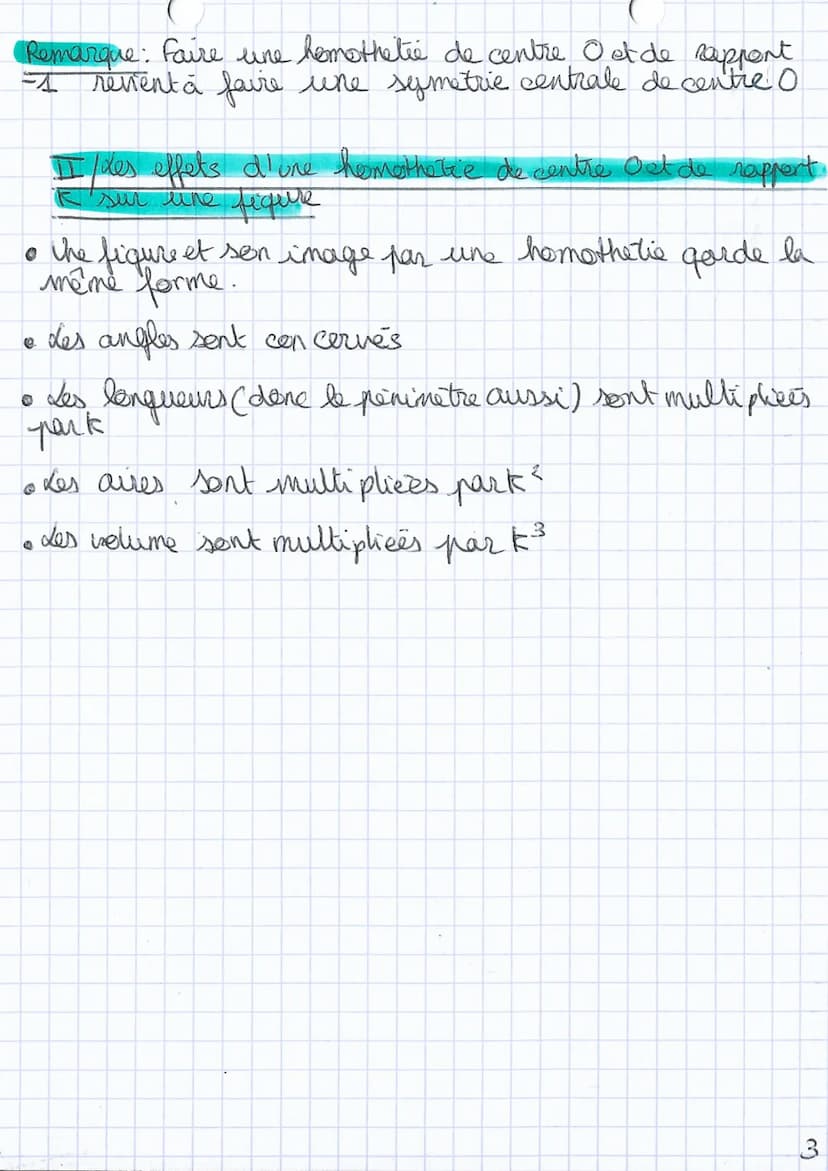 Remarque: Faire une homothetie de centre O et de rapport
-1 revient à faire une symetrie centrale de centre O
II/des effets d'une homothetie de centre O et de rapport
K sur une figure
• Une figure et son image par une homothetie garde la
même forme.
• Les angles sont concervés
• Les longueurs (donc le périmètre aussi) sont multipliées
par k
• Les aires sont multipliées par k²
• Les volume sont multipliées par k³
3